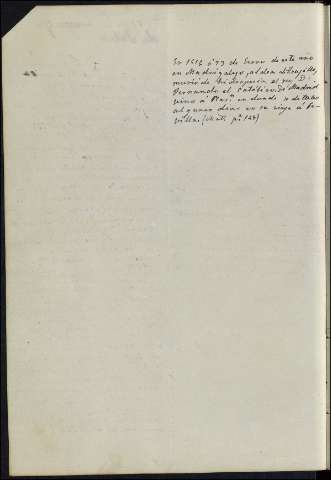 En 1516 á 23 de Enero de este año
en Madrigalejo, aldea de Trujillo,
murió de hidropesía el rey D.
Fernando el Católico. De Madrid
vino a Plasª en donde se detuvo
algunos dias en su viaje á Se-
villa. (Mat. pª 128)